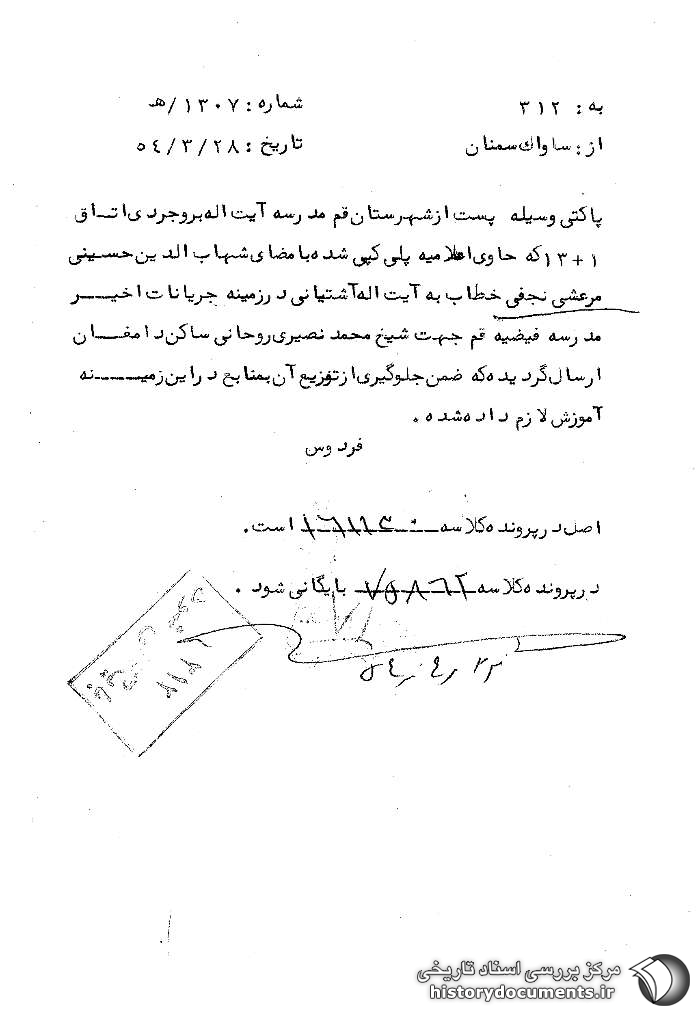 به : ۳۱۲
شماره : ۱۳۰۷/ه
از : ساواك سمنان
تاریخ : ۵۴/۳/۲۸
پاکتی وسیله پست از شهرستان قم مدرسه آیت اله بروجردی اتـاق
۱+۱۳ که حاوی اعلامیه پلی کپی شده بامضای شهاب الدین حسینی
مرعشی نجفی خطاب به آیت اله آشتیانی در زمینه جریانات اخیــر
مدرسه فیضیه قم جهت شیخ محمد نصیری روحانی ساکن دامغــان
ارسال گردیده که ضمن جلوگیری از توزیع آن بمنابع در این زمیــنه
آموزش لازم داده شده .
فردوس
اصل در پرونده کلاسه است .
در پرونده کلاسه بایگانی شود .
مرکز بررسی اسناد تاریخی
historydocuments.ir